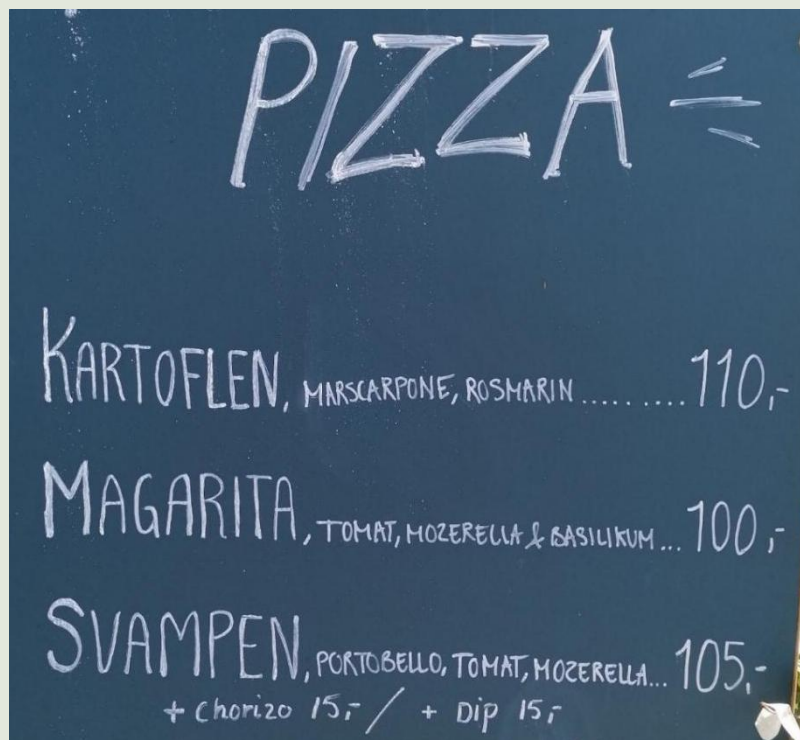 PIZZA
KARTOFLEN, MARSCARPONE, ROSMARIN .......... 110,-
MAGARITA, TOMAT, MOZERELLA & BASILIKUM ... 100,-
SVAMPEN, PORTOBELLO, TOMAT, MOZERELLA... 105,-
+ Chorizo 15,- / + DIP 15,-